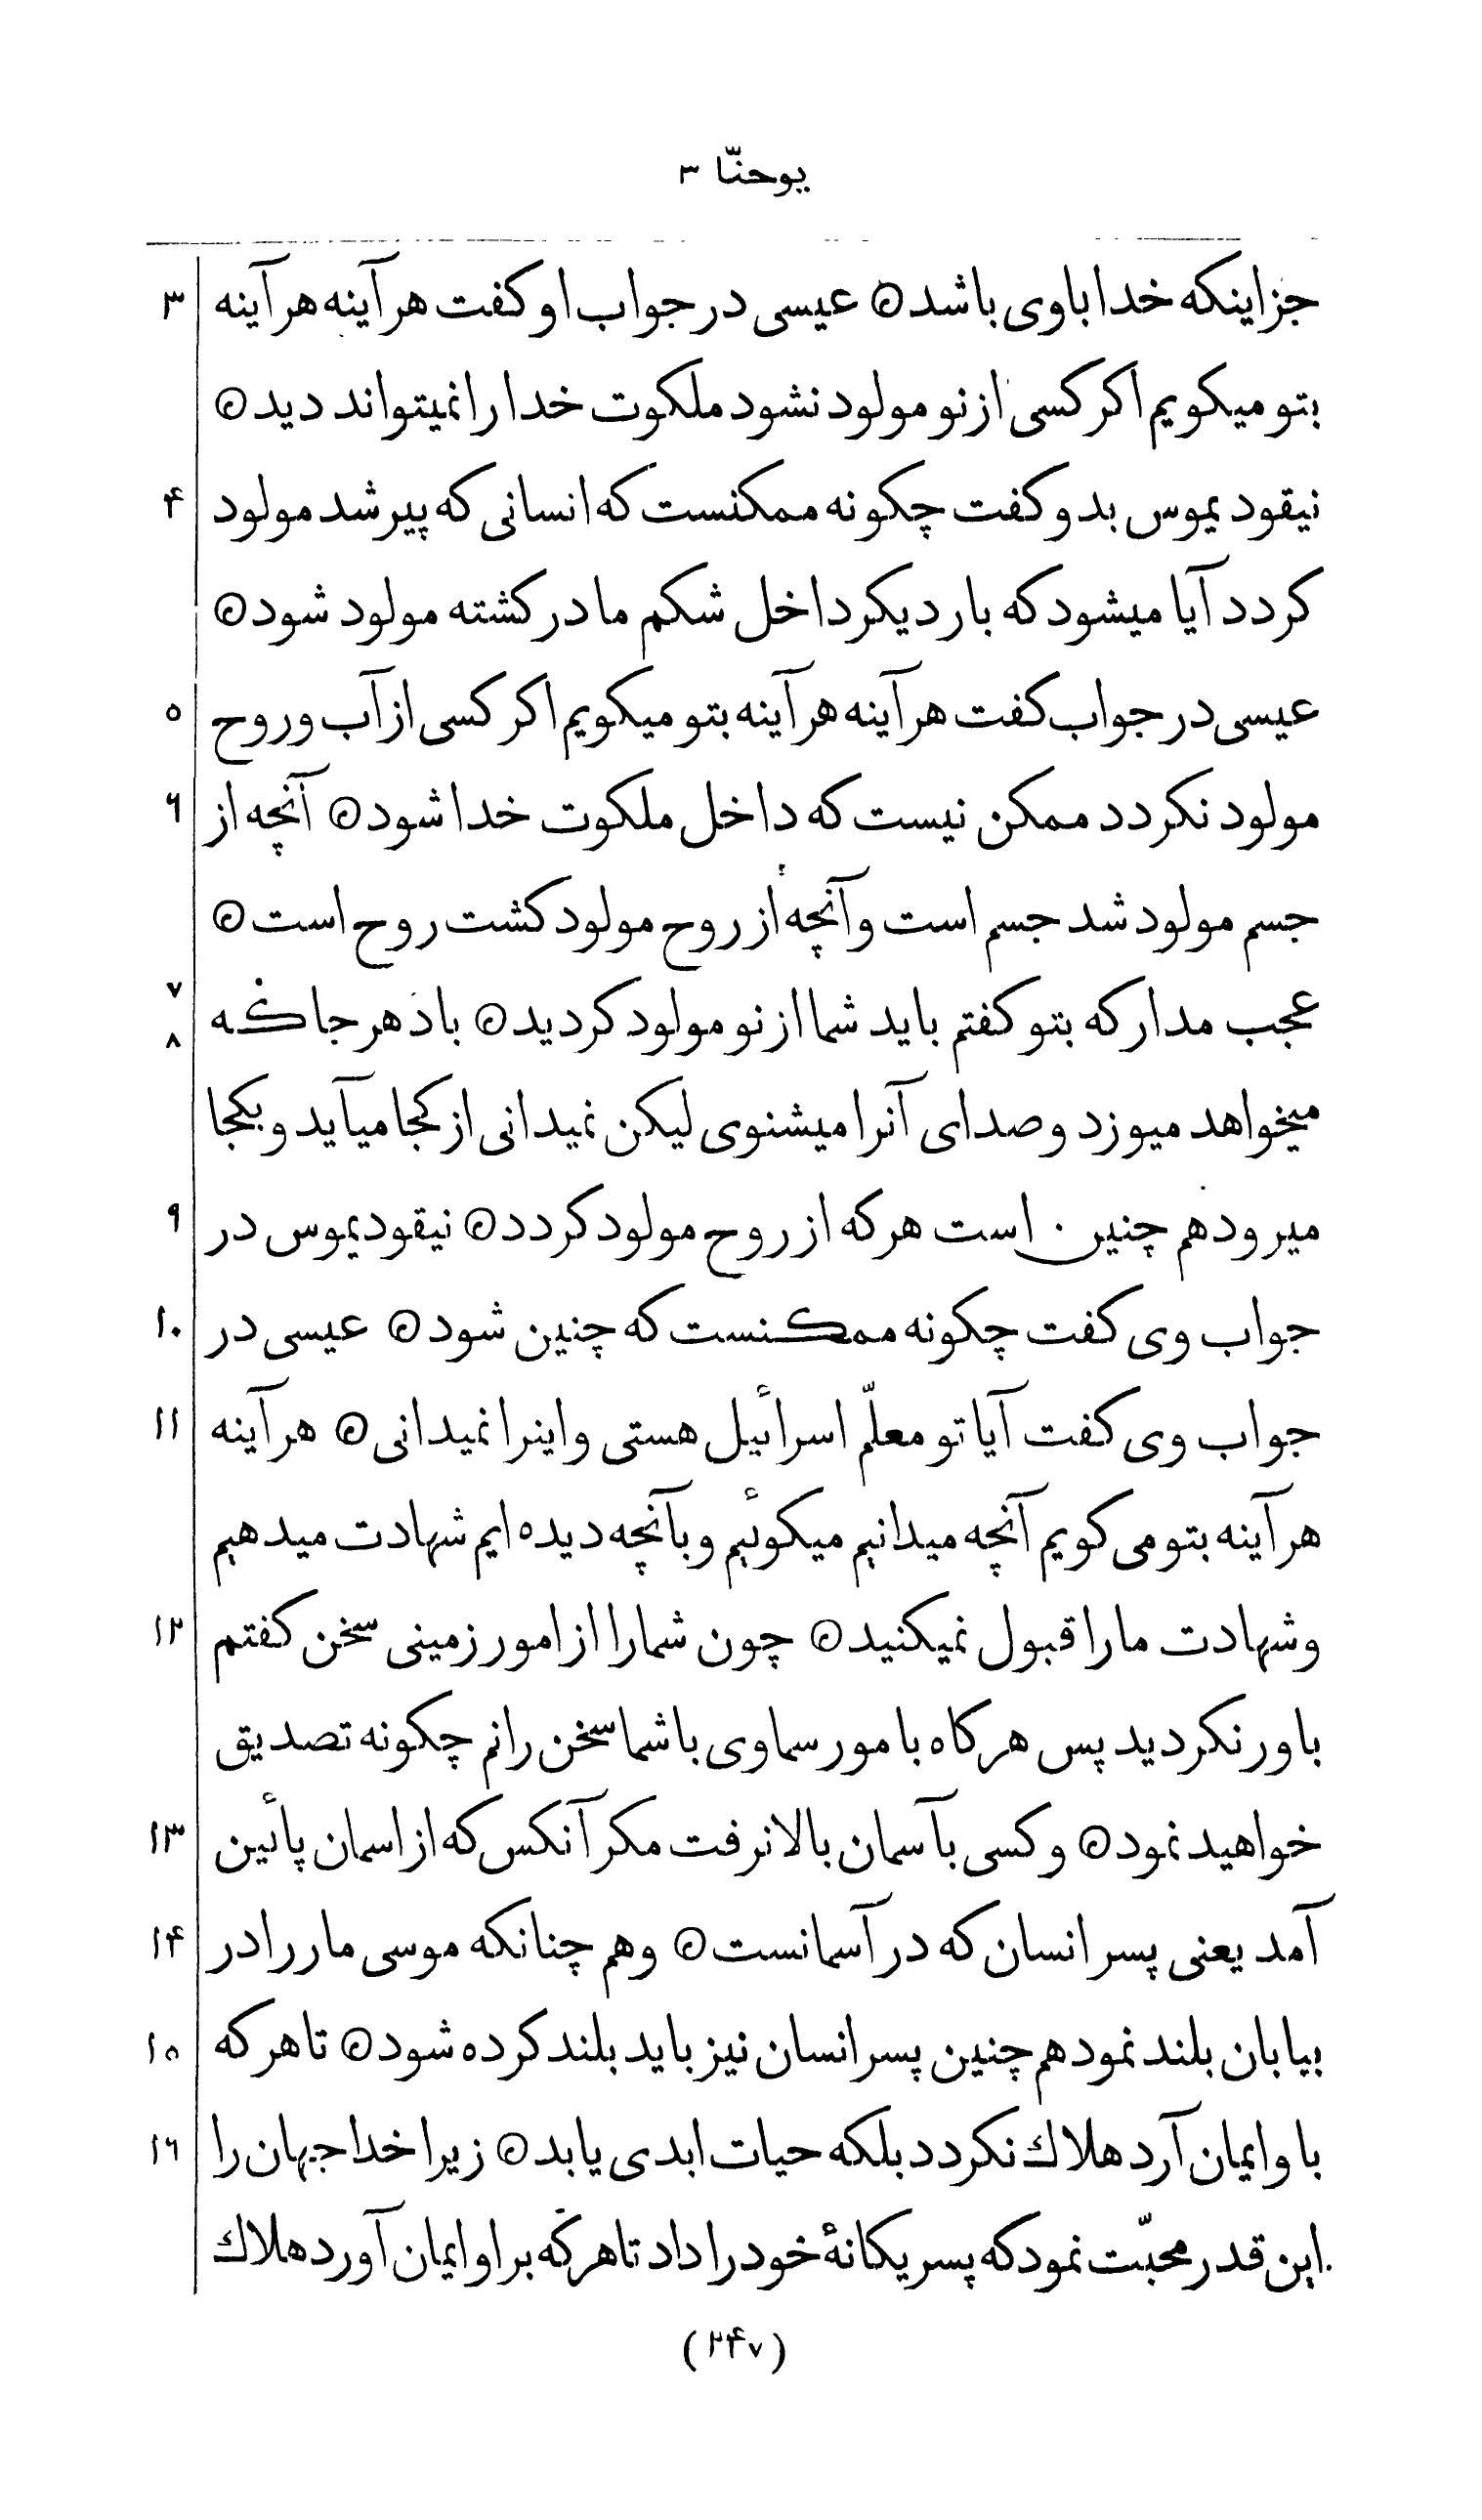 یوحنّا ۳
جز اینکه خدا باوی باشد ۝ عیسی در جواب او کفت هر آینه هر آینه ۳
بتو میکویم اکر کسی از نو مولود نشود ملکوت خدا را نمیتواند دید ۝
نیقودیموس بدو کفت چکونه ممکنست که انسانی که پیر شد مولود ۴
کردد آیا میشود که بار دیکر داخل شکم مادر کشته مولود شود ۝
عیسی در جواب کفت هر آینه هر آینه بتو میکویم اکر کسی از آب و روح ۵
مولود نکردد ممکن نیست که داخل ملکوت خدا شود ۝ آنچه از ۶
جسم مولود شد جسم است و آنچه از روح مولود کشت روح است ۝
عجب مدار که بتو کفتم باید شما از نو مولود کردید ۝ باد هر جا که ۷ ۸
میخواهد میوزد و صدای آنرا میشنوی لیکن نمیدانی از کجا میآید و بکجا
میرود هم چنین است هر که از روح مولود کردد ۝ نیقودیموس در ۹
جواب وی کفت چکونه ممکنست که چنین شود ۝ عیسی در ۱۰
جواب وی کفت آیا تو معلّم اسرائیل هستی و اینرا نمیدانی ۝ هر آینه ۱۱
هر آینه بتو می کویم آنچه میدانیم میکوئیم و بآنچه دیده ایم شهادت میدهیم
و شهادت ما را قبول نمیکنید ۝ چون شما را از امور زمینی سخن کفتم ۱۲
باور نکردید پس هر کاه بامور سماوی با شما سخن رانم چکونه تصدیق
خواهید نمود ۝ و کسی بآسمان بالا نرفت مکر آنکس که از اسمان پائین ۱۳
آمد یعنی پسر انسان که در آسمانست ۝ و هم چنانکه موسی مار را در ۱۴
بیابان بلند نمود هم چنین پسر انسان نیز باید بلند کرده شود ۝ تا هر که ۱۵
باو ایمان آرد هلاك نکردد بلکه حیات ابدی یابد ۝ زیرا خدا جهان را ۱۶
این قدر محبّت نمود که پسر یکانهٔ خود را داد تا هر که بر او ایمان آورد هلاك
(۲۴۷)